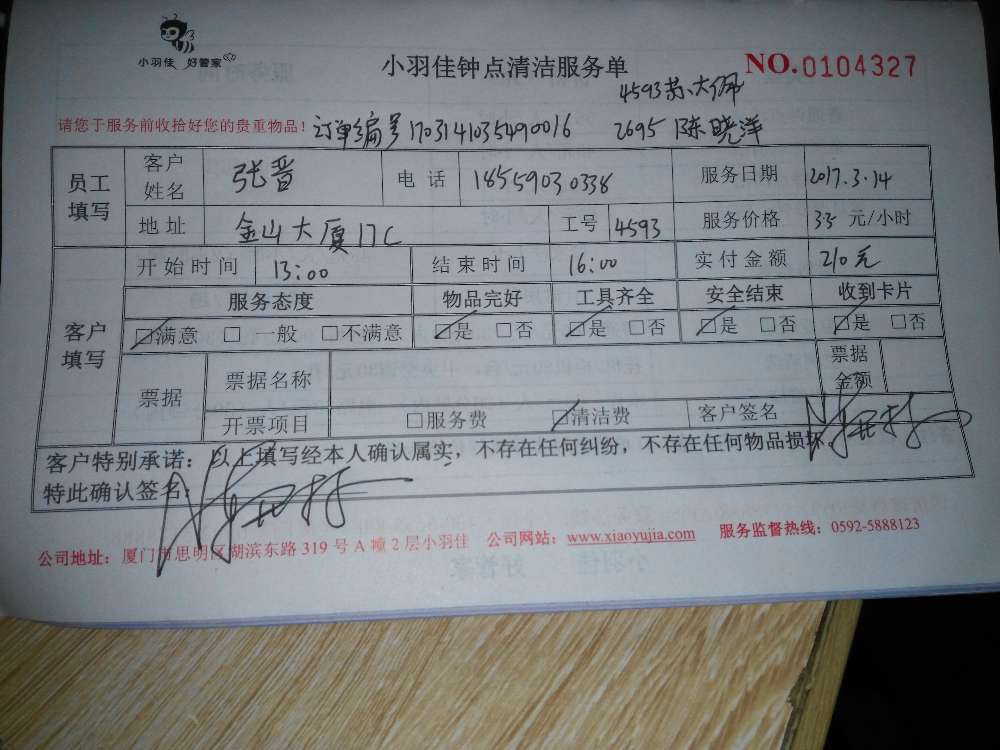 小羽佳 好管家
小羽佳钟点清洁服务单 NO.0104327
4593苏大佩
请您于服务前收拾好您的贵重物品! 订单编号1703141035490016 2695陈晓洋
员工填写 客户姓名 张晋 电话 18559030338 服务日期 2017.3.14
地址 金山大厦17C 工号 4593 服务价格 35 元/小时
客户填写 开始时间 13:00 结束时间 16:00 实付金额 210元
服务态度 物品完好 工具齐全 安全结束 收到卡片
☑满意 □一般 □不满意 ☑是 □否 ☑是 □否 ☑是 □否 ☑是 □否
票据 票据名称 票据金额
开票项目 □服务费 ☑清洁费 客户签名
客户特别承诺:以上填写经本人确认属实,不存在任何纠纷,不存在任何物品损坏,
特此确认签名:
公司地址:厦门市思明区湖滨东路 319 号 A 幢 2 层小羽佳 公司网站:www.xiaoyujia.com 服务监督热线:0592-5888123